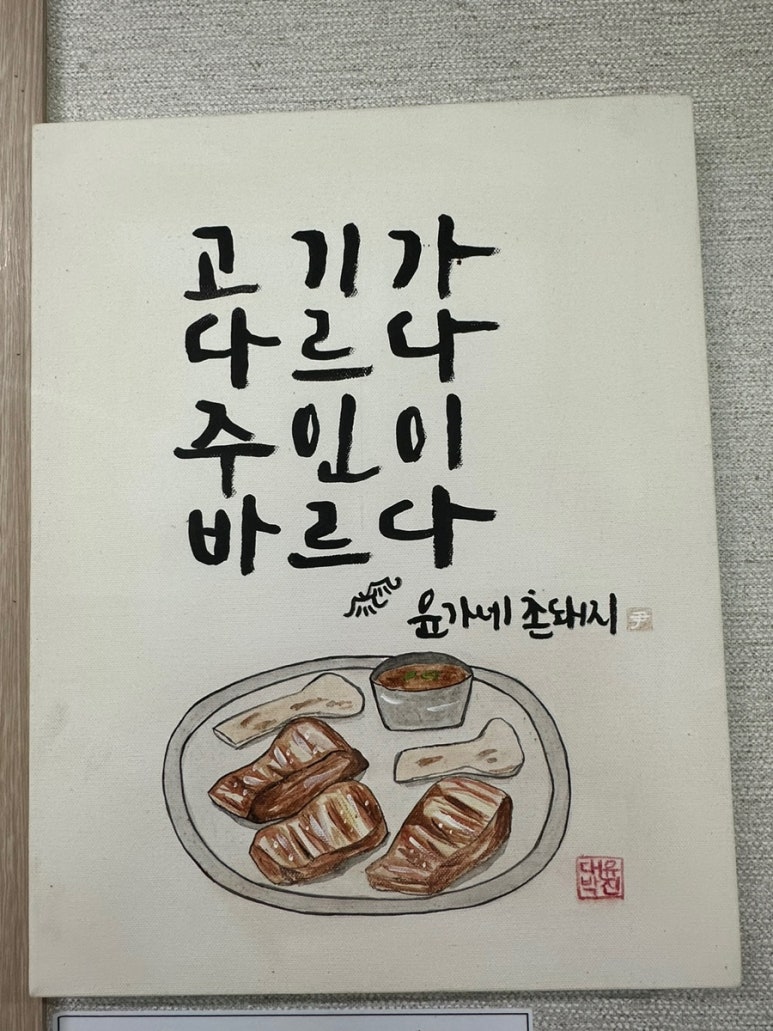 고기가
다르다
주인이
바르다
윤가네 촌돼지
尹
대윤
박진